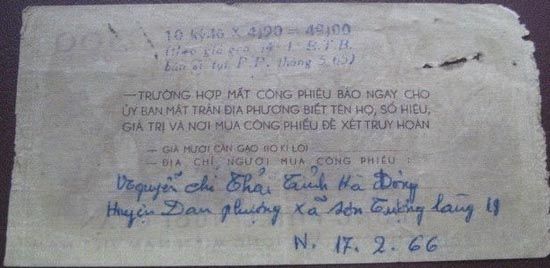 10 kylô x 4$90 = 49$00
(theo giá gạo số 1 B.T.B.
bán sĩ tại P.P. tháng 5.65)
— TRƯỜNG HỢP MẤT CÔNG PHIẾU BÁO NGAY CHO
ỦY BAN MẶT TRẬN ĐỊA PHƯƠNG BIẾT TÊN HỌ, SỐ HIỆU,
GIÁ TRỊ VÀ NƠI MUA CÔNG PHIẾU ĐỂ XÉT TRUY HOÀN
— GIÁ MƯỜI CÂN GẠO (10 KI LÔ)
— ĐỊA CHỈ NGƯỜI MUA CÔNG PHIẾU :
Nguyễn Chí Thái Tỉnh Hà Đông
Huyện Đan Phượng xã Sơn Tượng làng
N. 17. 2. 66